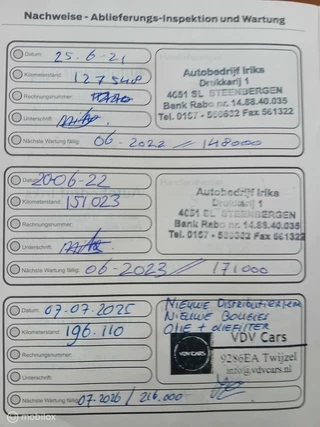 Nachweise - Ablieferungs-Inspektion und Wartung
Datum: 25-6-21
Kilometerstand: 127548
Rechnungsnummer:
Unterschrift:
Nächste Wartung fällig: 06-2022 // 148000
Autobedrijf Iriks
Drukkerij 1
4651 SL STEENBERGEN
Bank Rabo nr. 14.88.40.035
Tel. 0167 - 566632 Fax 561322
Datum: 20-06-22
Kilometerstand: 151023
Rechnungsnummer:
Unterschrift:
Nächste Wartung fällig: 06-2023 // 171000
Autobedrijf Iriks
Drukkerij 1
4651 SL STEENBERGEN
Bank Rabo nr. 14.88.40.035
Tel. 0167 - 566632 Fax 561322
Datum: 07-07-2025
Kilometerstand: 196.110
Rechnungsnummer:
Unterschrift:
Nächste Wartung fällig: 07-2026 / 216.000
NIEUWE DISTRIBUTIERIEM
NIEUWE BOUGIES
OLIE + OLIEFILTER
VDV CARS
VDV Cars
9286EA Twijzel
info@vdvcars.nl
© mobilox